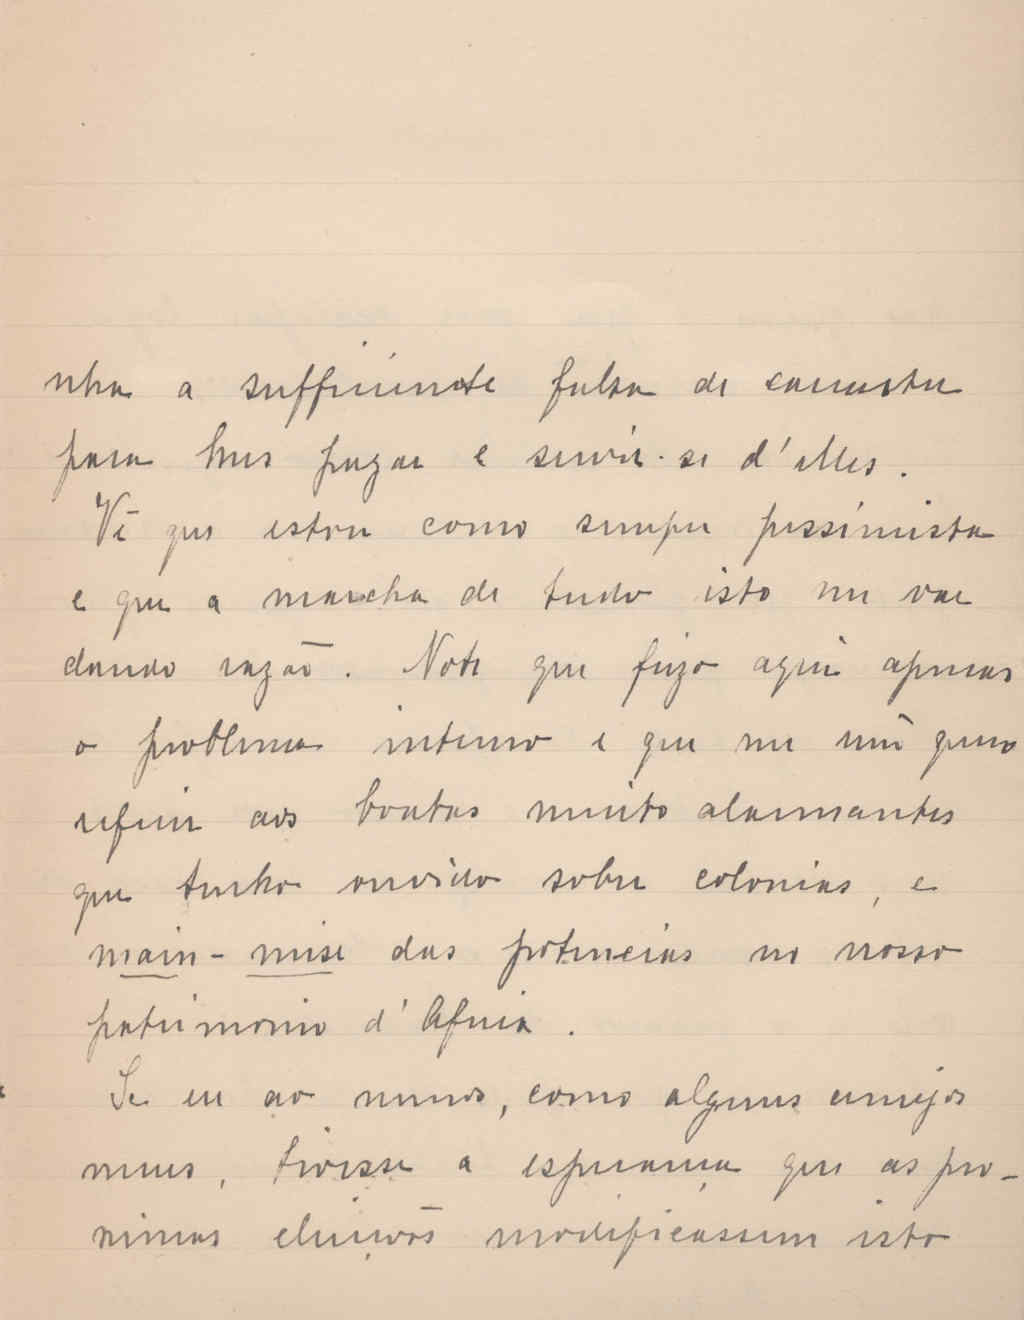 nha a sufficiente falta de caracter
para lhes pagar e servir-se d'elles.
Vê que estou como sempre pessimista
e que a marcha de tudo isto me vae
dando razão. Note que fujo aqui apenas
o problema interno e que me não quero
referir aos boatos muito alarmantes
que tenho ouvido sobre colonias, e
main-mise das potencias no nosso
patrimonio d'Africa.
Se eu ao menos, como alguns amigos
meus, tivesse a esperança que as pro-
ximas eleições modificassem isto